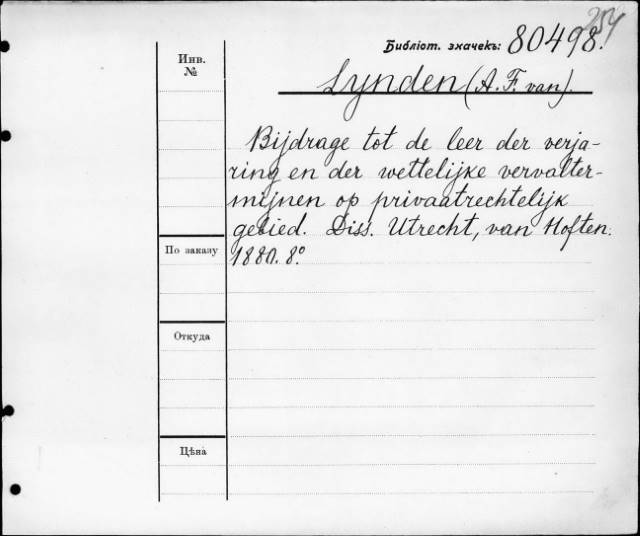 254
Библіот. значекъ: 80498.
Инв.
№
Lynden (A. F. van).
Bijdrage tot de leer der verja-
ring en der wettelijke vervalter-
mijnen op privaatrechtelijk
gebied. Diss. Utrecht, van Hoften.
1880. 8°
По заказу
Откуда
Цѣна